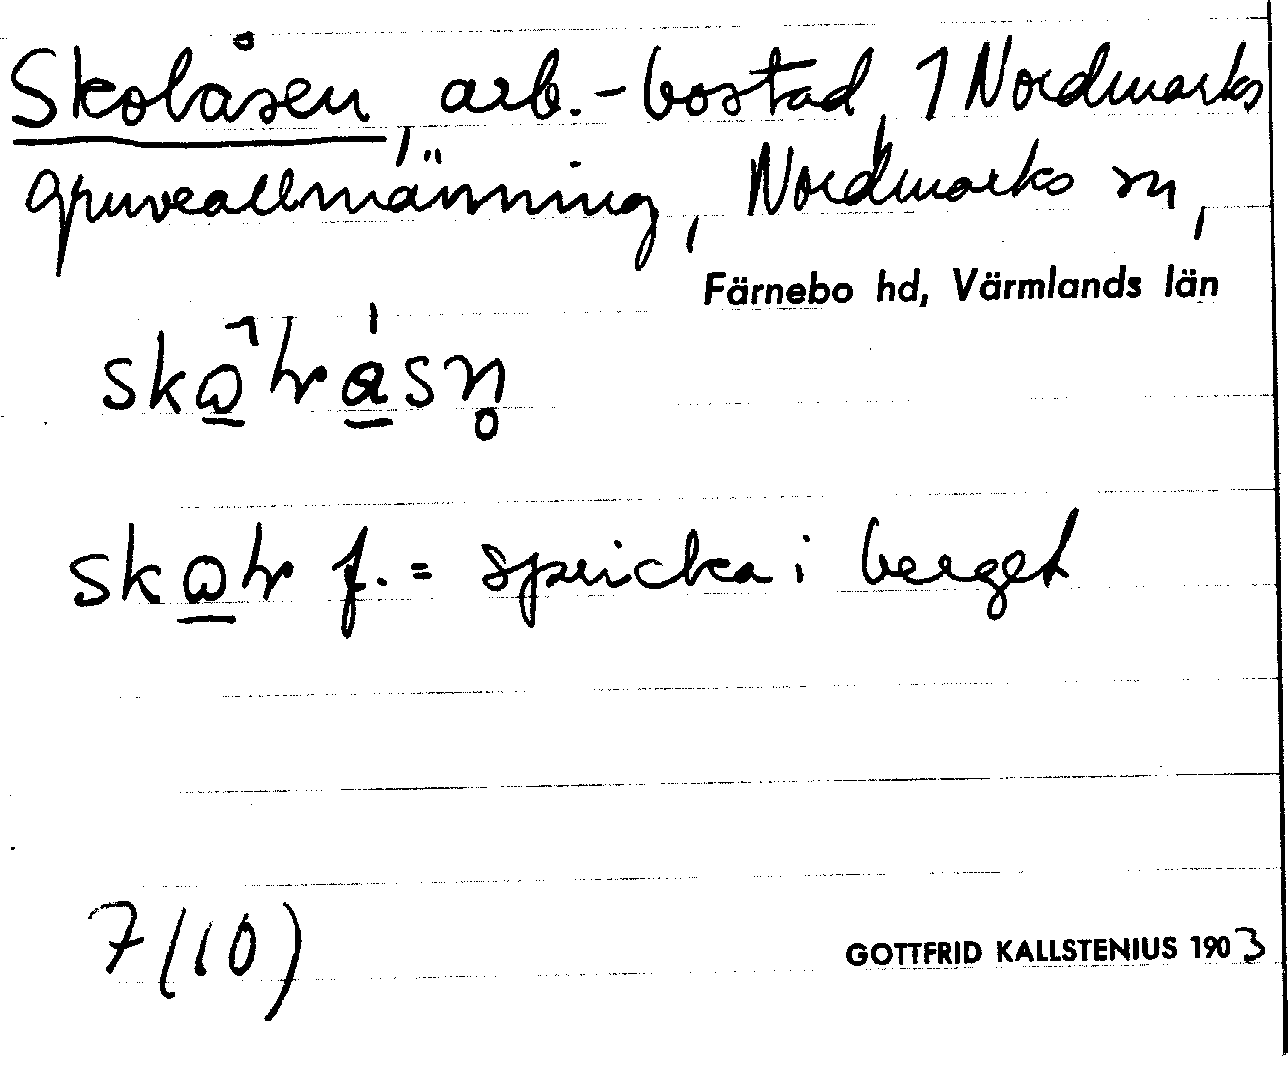 Skolåsen, arb.-bostad, 1 Nordmarks
gruveallmänning, Nordmarks sn,
Färnebo hd, Värmlands län
f. = spricka i berget
7(10)
GOTTFRID KALLSTENIUS 1903